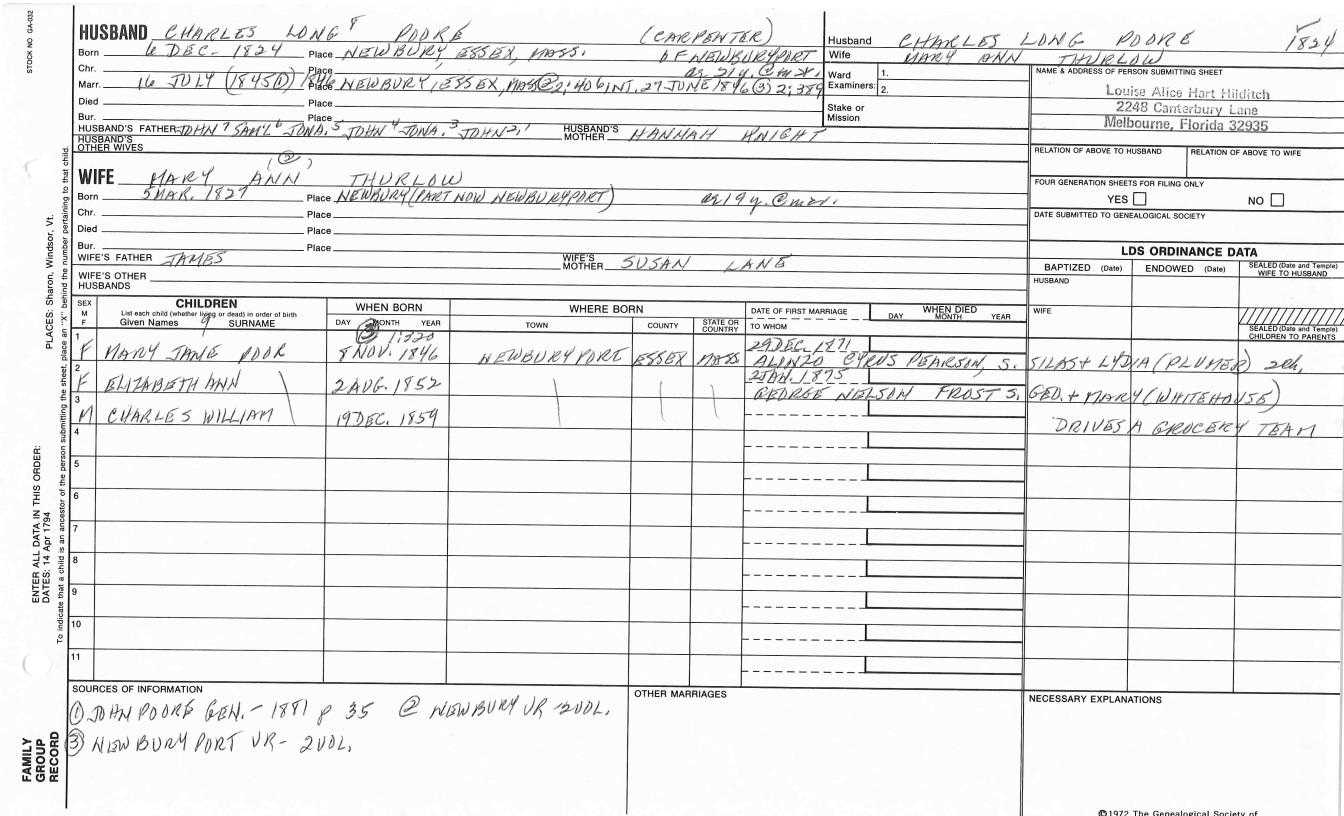 STOCK NO. GA-032
HUSBAND CHARLES LONG 8 POORE (CARPENTER)
Born 6 DEC. 1824 Place NEWBURY, ESSEX, MASS. OF NEWBURYPORT
Chr. Place ae 21 y. @ mar.
Marr. 16 JULY (1845①) 1846 Place NEWBURY, ESSEX, MASS ② 2; 406 INT. 27 JUNE 1846 ③ 2; 389
Died Place
Bur. Place
HUSBAND'S FATHER JOHN 7 SAML 6 JONA. 5 JOHN 4 JONA. 3 JOHN 2, 1 HUSBAND'S MOTHER HANNAH KNIGHT
HUSBAND'S OTHER WIVES
(②)
WIFE MARY ANN THURLOW
Born 5 MAR. 1827 Place NEWBURY (PART NOW NEWBURYPORT) ae 19 y. @ mar.
Chr. Place
Died Place
Bur. Place
WIFE'S FATHER JAMES WIFE'S MOTHER SUSAN LANE
WIFE'S OTHER HUSBANDS
Husband CHARLES LONG POORE 1824
Wife MARY ANN THURLOW
Ward Examiners: 1.
2.
Stake or Mission
NAME & ADDRESS OF PERSON SUBMITTING SHEET
Louise Alice Hart Hilditch
2248 Canterbury Lane
Melbourne, Florida 32935
RELATION OF ABOVE TO HUSBAND RELATION OF ABOVE TO WIFE
FOUR GENERATION SHEETS FOR FILING ONLY
YES NO
DATE SUBMITTED TO GENEALOGICAL SOCIETY
LDS ORDINANCE DATA
BAPTIZED (Date) ENDOWED (Date) SEALED (Date and Temple) WIFE TO HUSBAND
HUSBAND
WIFE
SEALED (Date and Temple) CHILDREN TO PARENTS
SEX M F
CHILDREN
List each child (whether living or dead) in order of birth
Given Names 9 SURNAME
WHEN BORN
DAY MONTH YEAR
WHERE BORN
TOWN COUNTY STATE OR COUNTRY
DATE OF FIRST MARRIAGE
TO WHOM
WHEN DIED
DAY MONTH YEAR
③ 1:320
1 F MARY JANE POOR 8 NOV. 1846 NEWBURYPORT ESSEX MASS 29 DEC. 1871
ALONZO CYRUS PEARSON, S. SILAS + LYDIA (PLUMER) 2ch.
2 F ELIZABETH ANN 2 AUG. 1852 2 JAN. 1875
GEORGE NELSON FROST S. GEO. + MARY (WHITEHOUSE)
3 M CHARLES WILLIAM 19 DEC. 1859
DRIVES A GROCERY TEAM
4
5
6
7
8
9
10
11
SOURCES OF INFORMATION
① JOHN POORE GEN. - 1881 p 35 ② NEWBURY VR 2VOL.
③ NEWBURYPORT VR - 2VOL.
OTHER MARRIAGES
NECESSARY EXPLANATIONS
FAMILY GROUP RECORD
ENTER ALL DATA IN THIS ORDER:
DATES: 14 Apr 1794
PLACES: Sharon, Windsor, Vt.
To indicate that a child is an ancestor of the person submitting the sheet, place an "X" behind the number pertaining to that child.
©1972 The Genealogical Society of